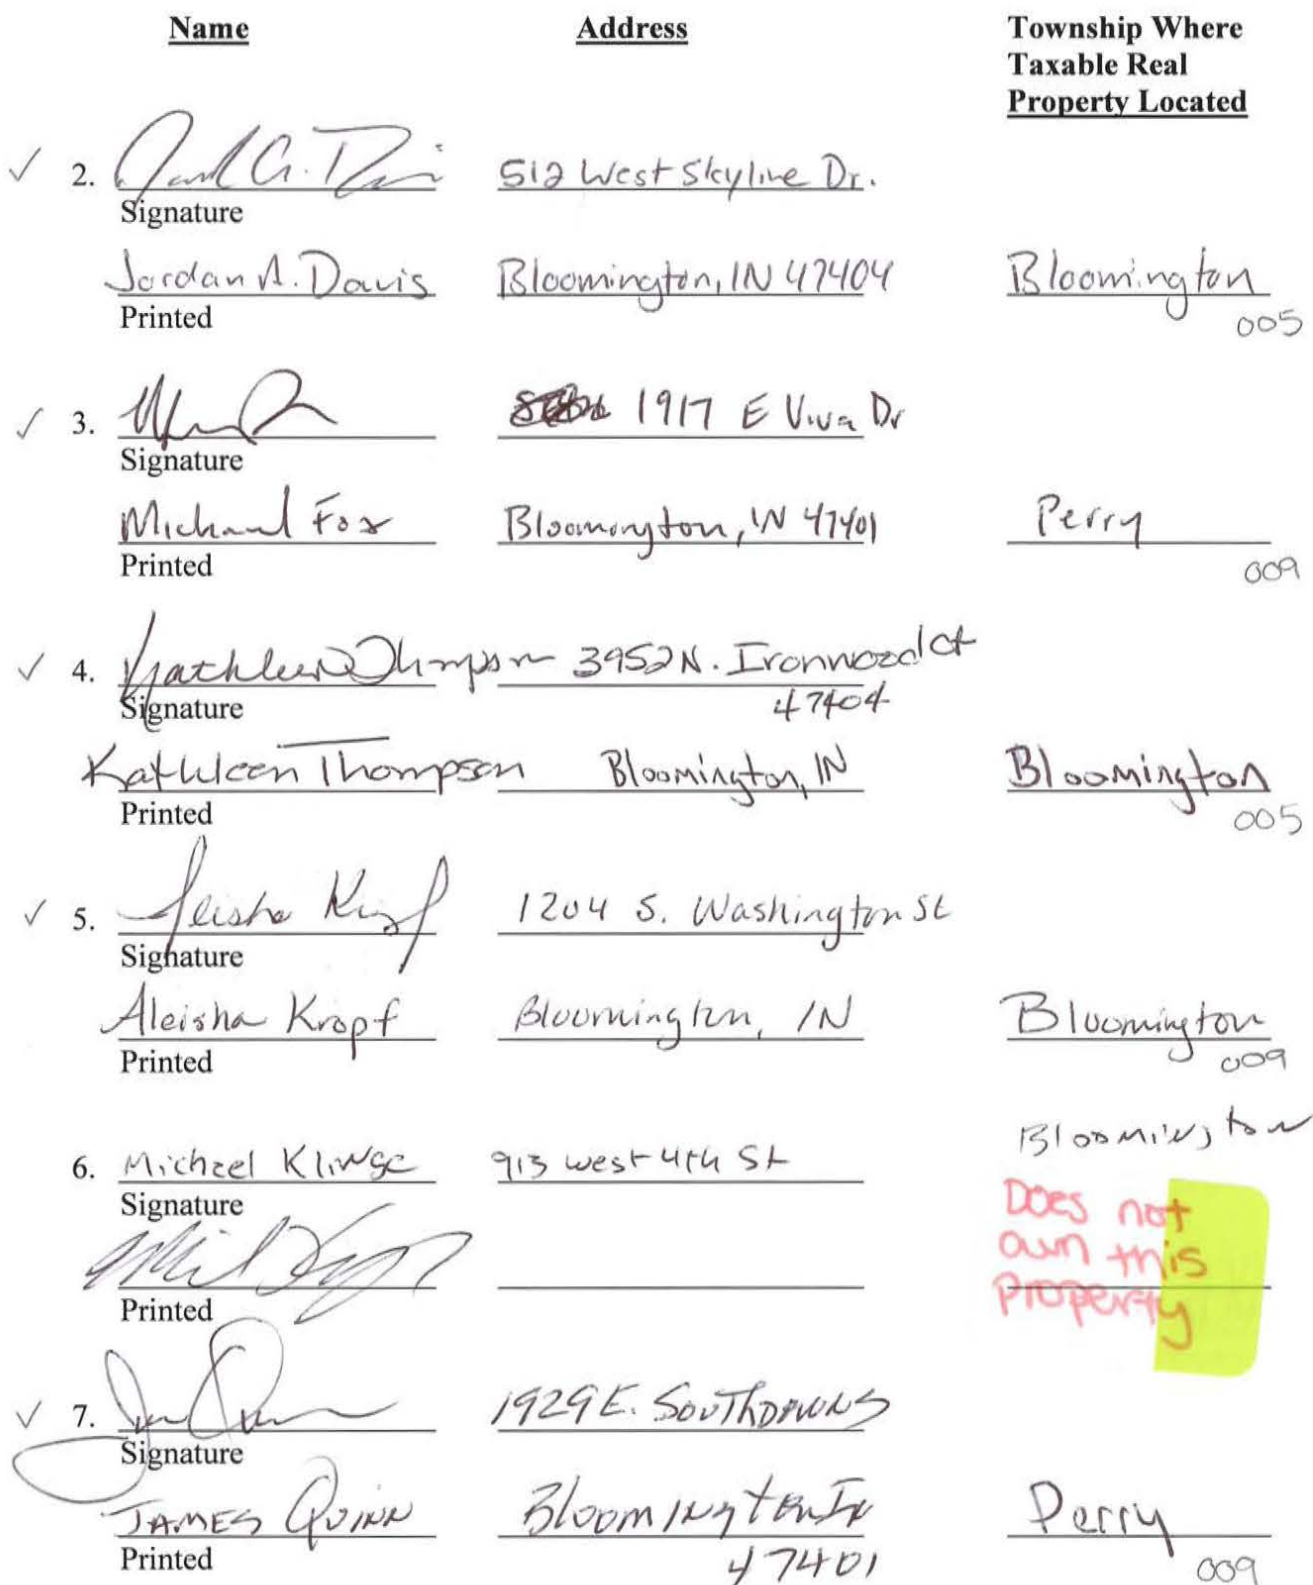 Name Address Township Where
Taxable Real
Property Located
✓ 2. 512 West Skyline Dr.
Signature
Jordan A. Davis Bloomington, IN 47404 Bloomington
Printed 005
✓ 3. 1917 E Viva Dr
Signature
Michael Fox Bloomington, IN 47401 Perry
Printed 009
✓ 4. Kathleen Thompson 3952 N. Ironwood Ct
Signature 47404
Kathleen Thompson Bloomington, IN Bloomington
Printed 005
✓ 5. Aleisha Kropf 1204 S. Washington St
Signature
Aleisha Kropf Bloomington, IN Bloomington
Printed 009
Bloomington
6. Michael Klinge 913 West 4th St
Signature Does not
own this
Property
Printed
✓ 7. 1929 E. Southdowns
Signature
James Quinn Bloomington In Perry
Printed 47401 009